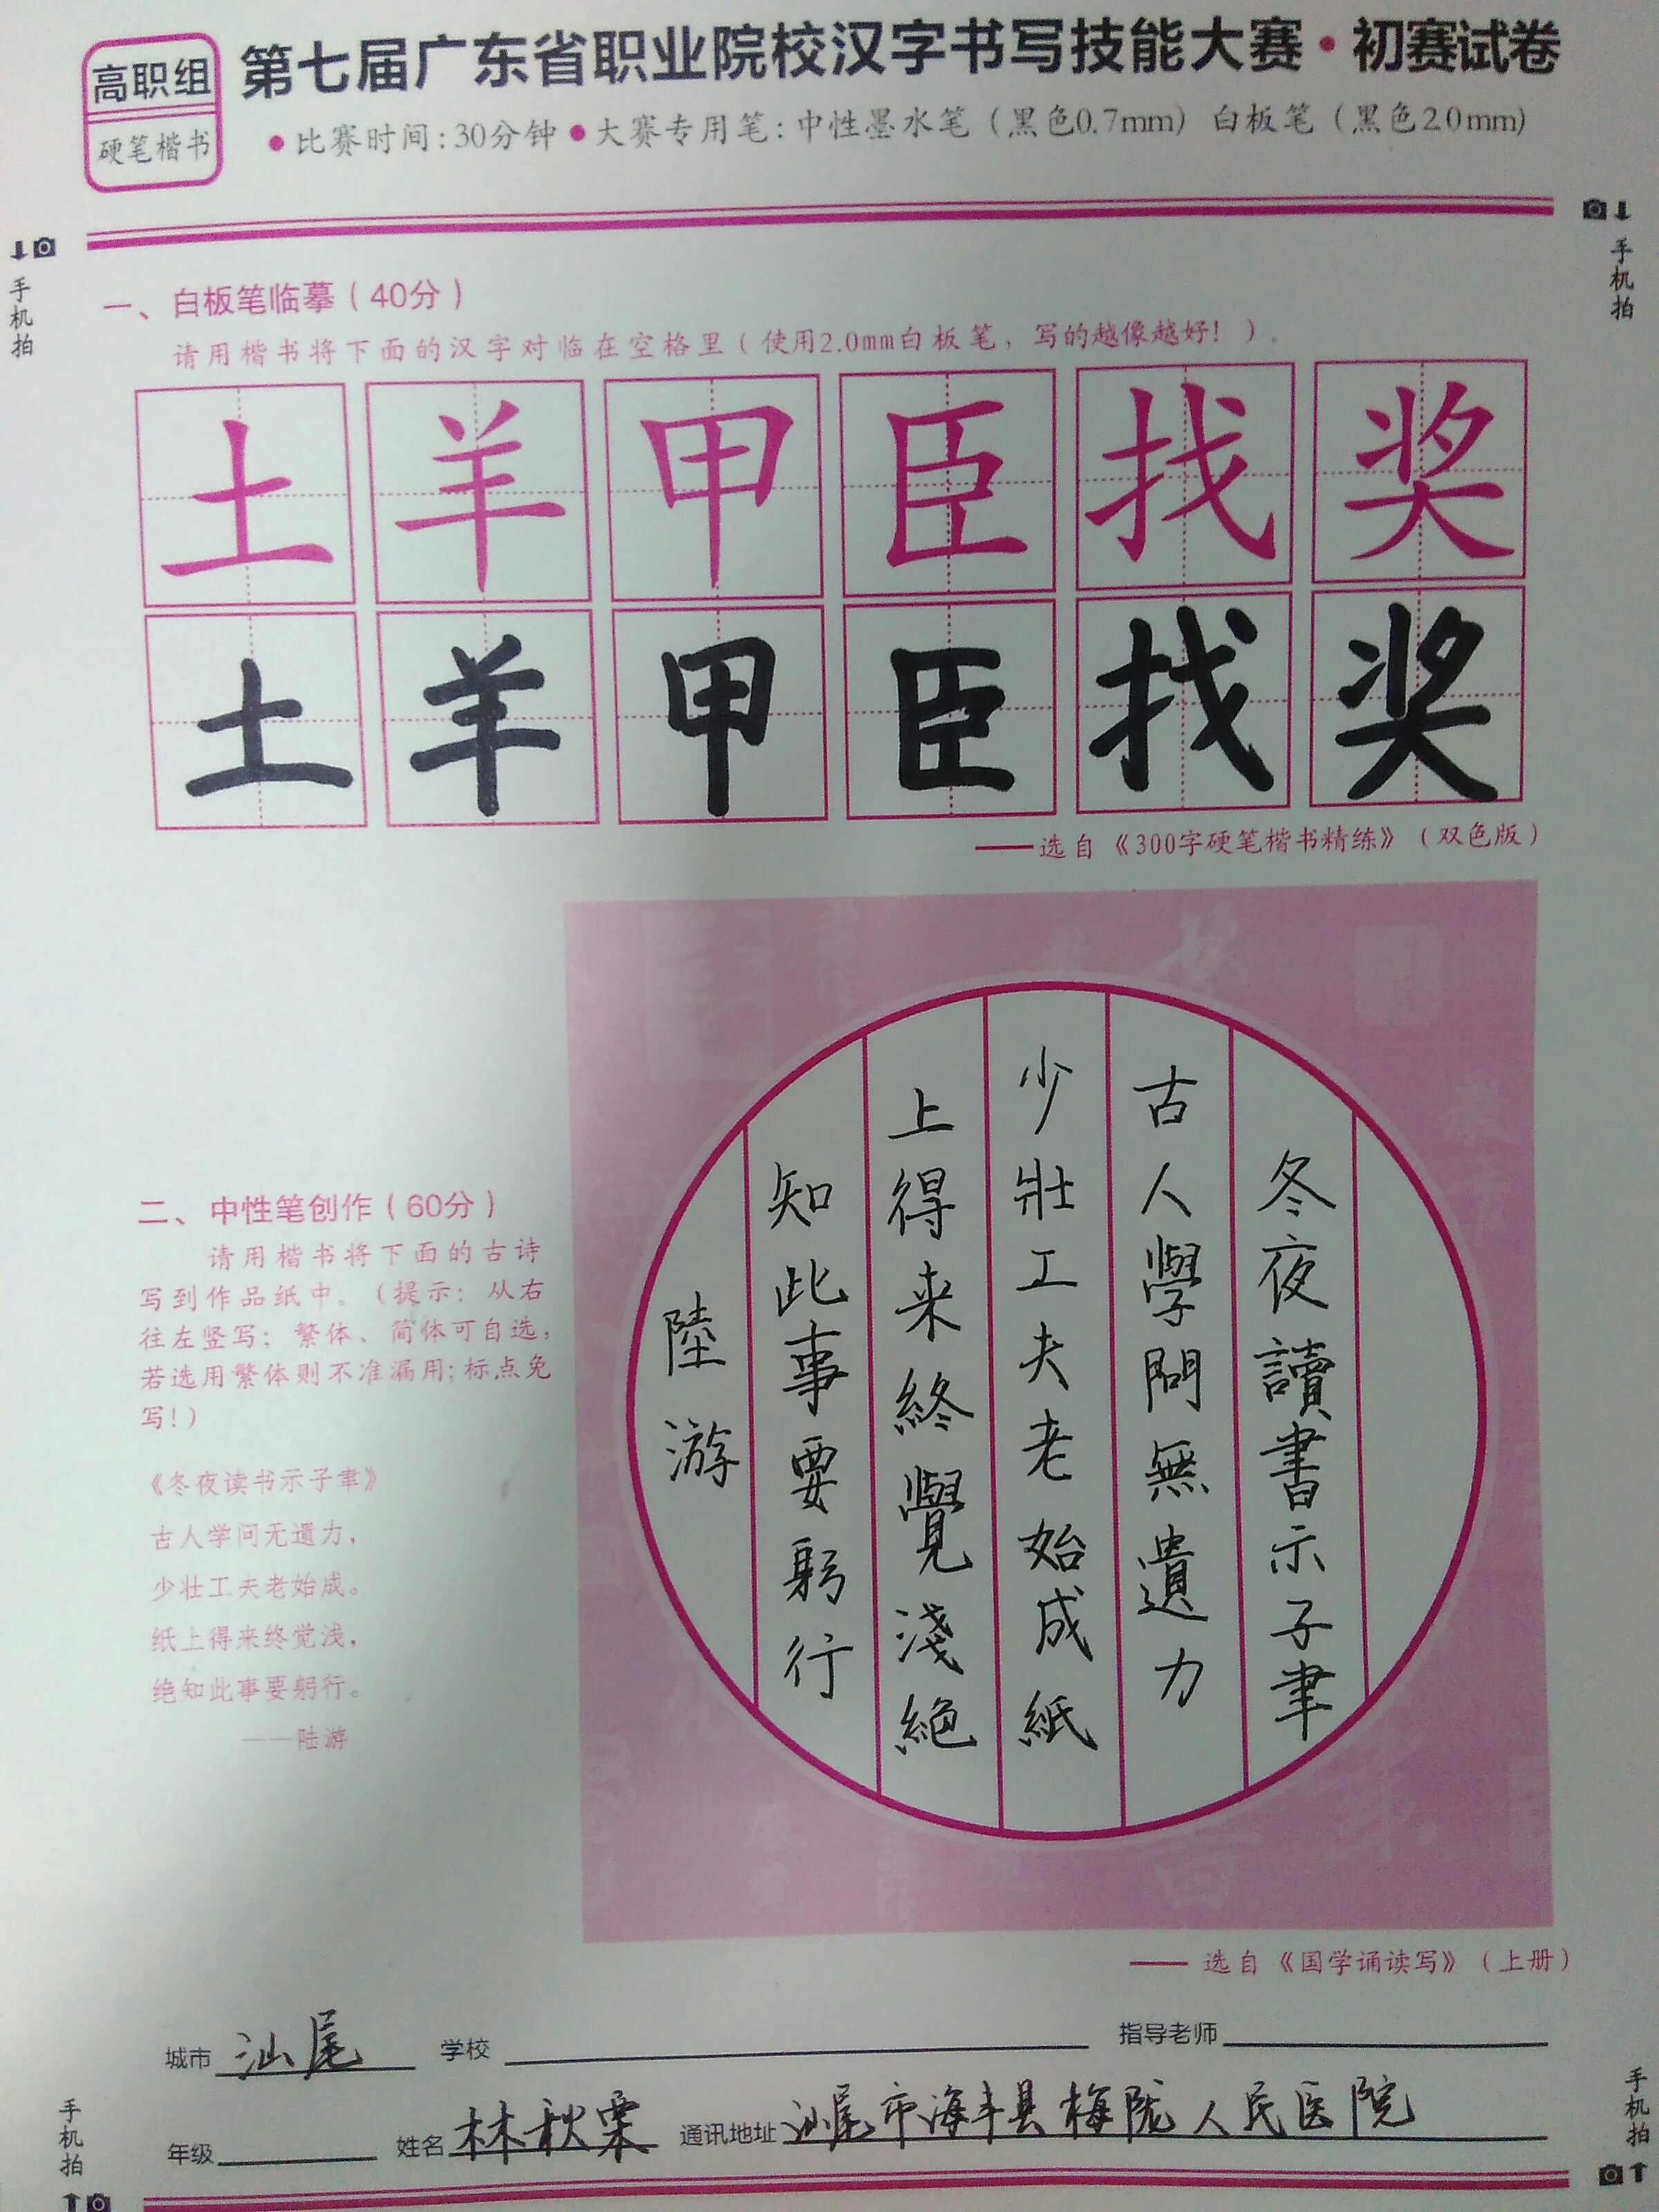 高职组
硬笔楷书
第七届广东省职业院校汉字书写技能大赛·初赛试卷
●比赛时间:30分钟●大赛专用笔:中性墨水笔(黑色0.7mm) 白板笔(黑色2.0mm)
手机拍
手机拍
一、白板笔临摹(40分)
请用楷书将下面的汉字对临在空格里(使用2.0mm白板笔,写的越像越好!)。
土羊甲臣找奖
土羊甲臣找奖
——选自《300字硬笔楷书精练》(双色版)
二、中性笔创作(60分)
请用楷书将下面的古诗
写到作品纸中。(提示:从右
往左竖写;繁体、简体可自选,
若选用繁体则不准漏用;标点免
写!)
《冬夜读书示子聿》
古人学问无遗力,
少壮工夫老始成。
纸上得来终觉浅,
绝知此事要躬行。
——陆游
冬夜讀書示子聿
古人學問無遺力
少壯工夫老始成紙
上得来終覺淺絕
知此事要躬行
陸游
——选自《国学诵读写》(上册)
城市 汕尾 学校 指导老师
年级 姓名 林秋栗 通讯地址 汕尾市海丰县梅陇人民医院
手机拍
手机拍